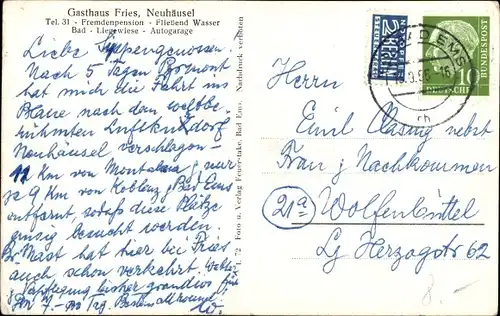 Gasthaus Fries, Neuhäusel
Tel. 31 - Fremdenpension - Fließend Wasser
Bad - Liegewiese - Autogarage
Liebe Sippengenossen.
Nach 5 Tagen Pyrmont
hat mich die Fahrt ins
Blaue nach dem weltbe-
rühmten Luftkurdorf
Neuhäusel verschlagen -
11 km von Montabaur, nur
je 9 km von Koblenz, Bad Ems
entfernt, sodaß diese Plätze
günstig besucht werden.
Mast hat hier bei Fries
auch schon verkehrt. Wetter
Verpflegung bisher grandios für
7.- pro Tag. Besten allround!
W.
Foto u. Verlag Feuerstake, Bad Ems. Nachdruck verboten
NOTOPFER
2 BERLIN
STEUERMARKE
BAD EMS
10
DEUTSCHE BUNDESPOST
Herrn
Emil Clasing nebst
Frau & Nachkommen
21a Wolfenbüttel
Lg Herzogstr 62
8.-